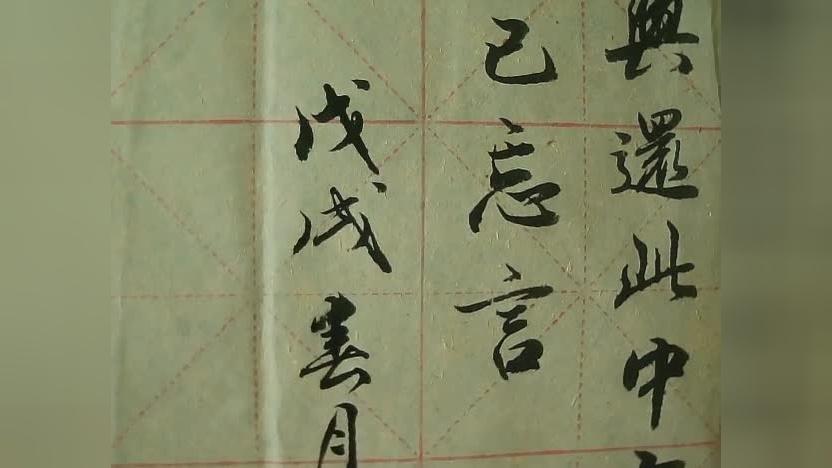 與還此中
已忘言
戊戌春月